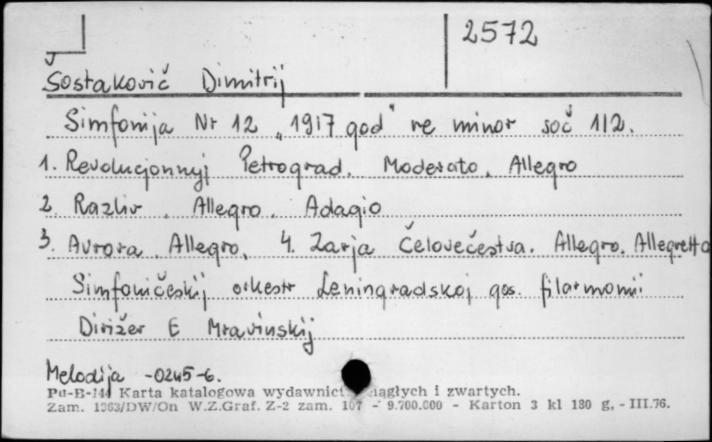 2572
Šostaković Dimitrij
Simfonija Nr 12 „1917 god" re minor soč 112.
1. Revolucjonnyj Petrograd. Moderato, Allegro
2. Razliv. Allegro. Adagio
3. Avrora. Allegro, 4. Zarja Čelovečestva. Allegro, Allegretto
Simfoničeskij orkestr Leningradskoj gos. filarmonii
Dirižer E Mravinskij
Melodija -0245-6.
Pu-B-144 Karta katalogowa wydawnict ciągłych i zwartych.
Zam. 1363/DW/On W.Z.Graf. Z-2 zam. 107 - 9.700.000 - Karton 3 kl 180 g, - III.76.